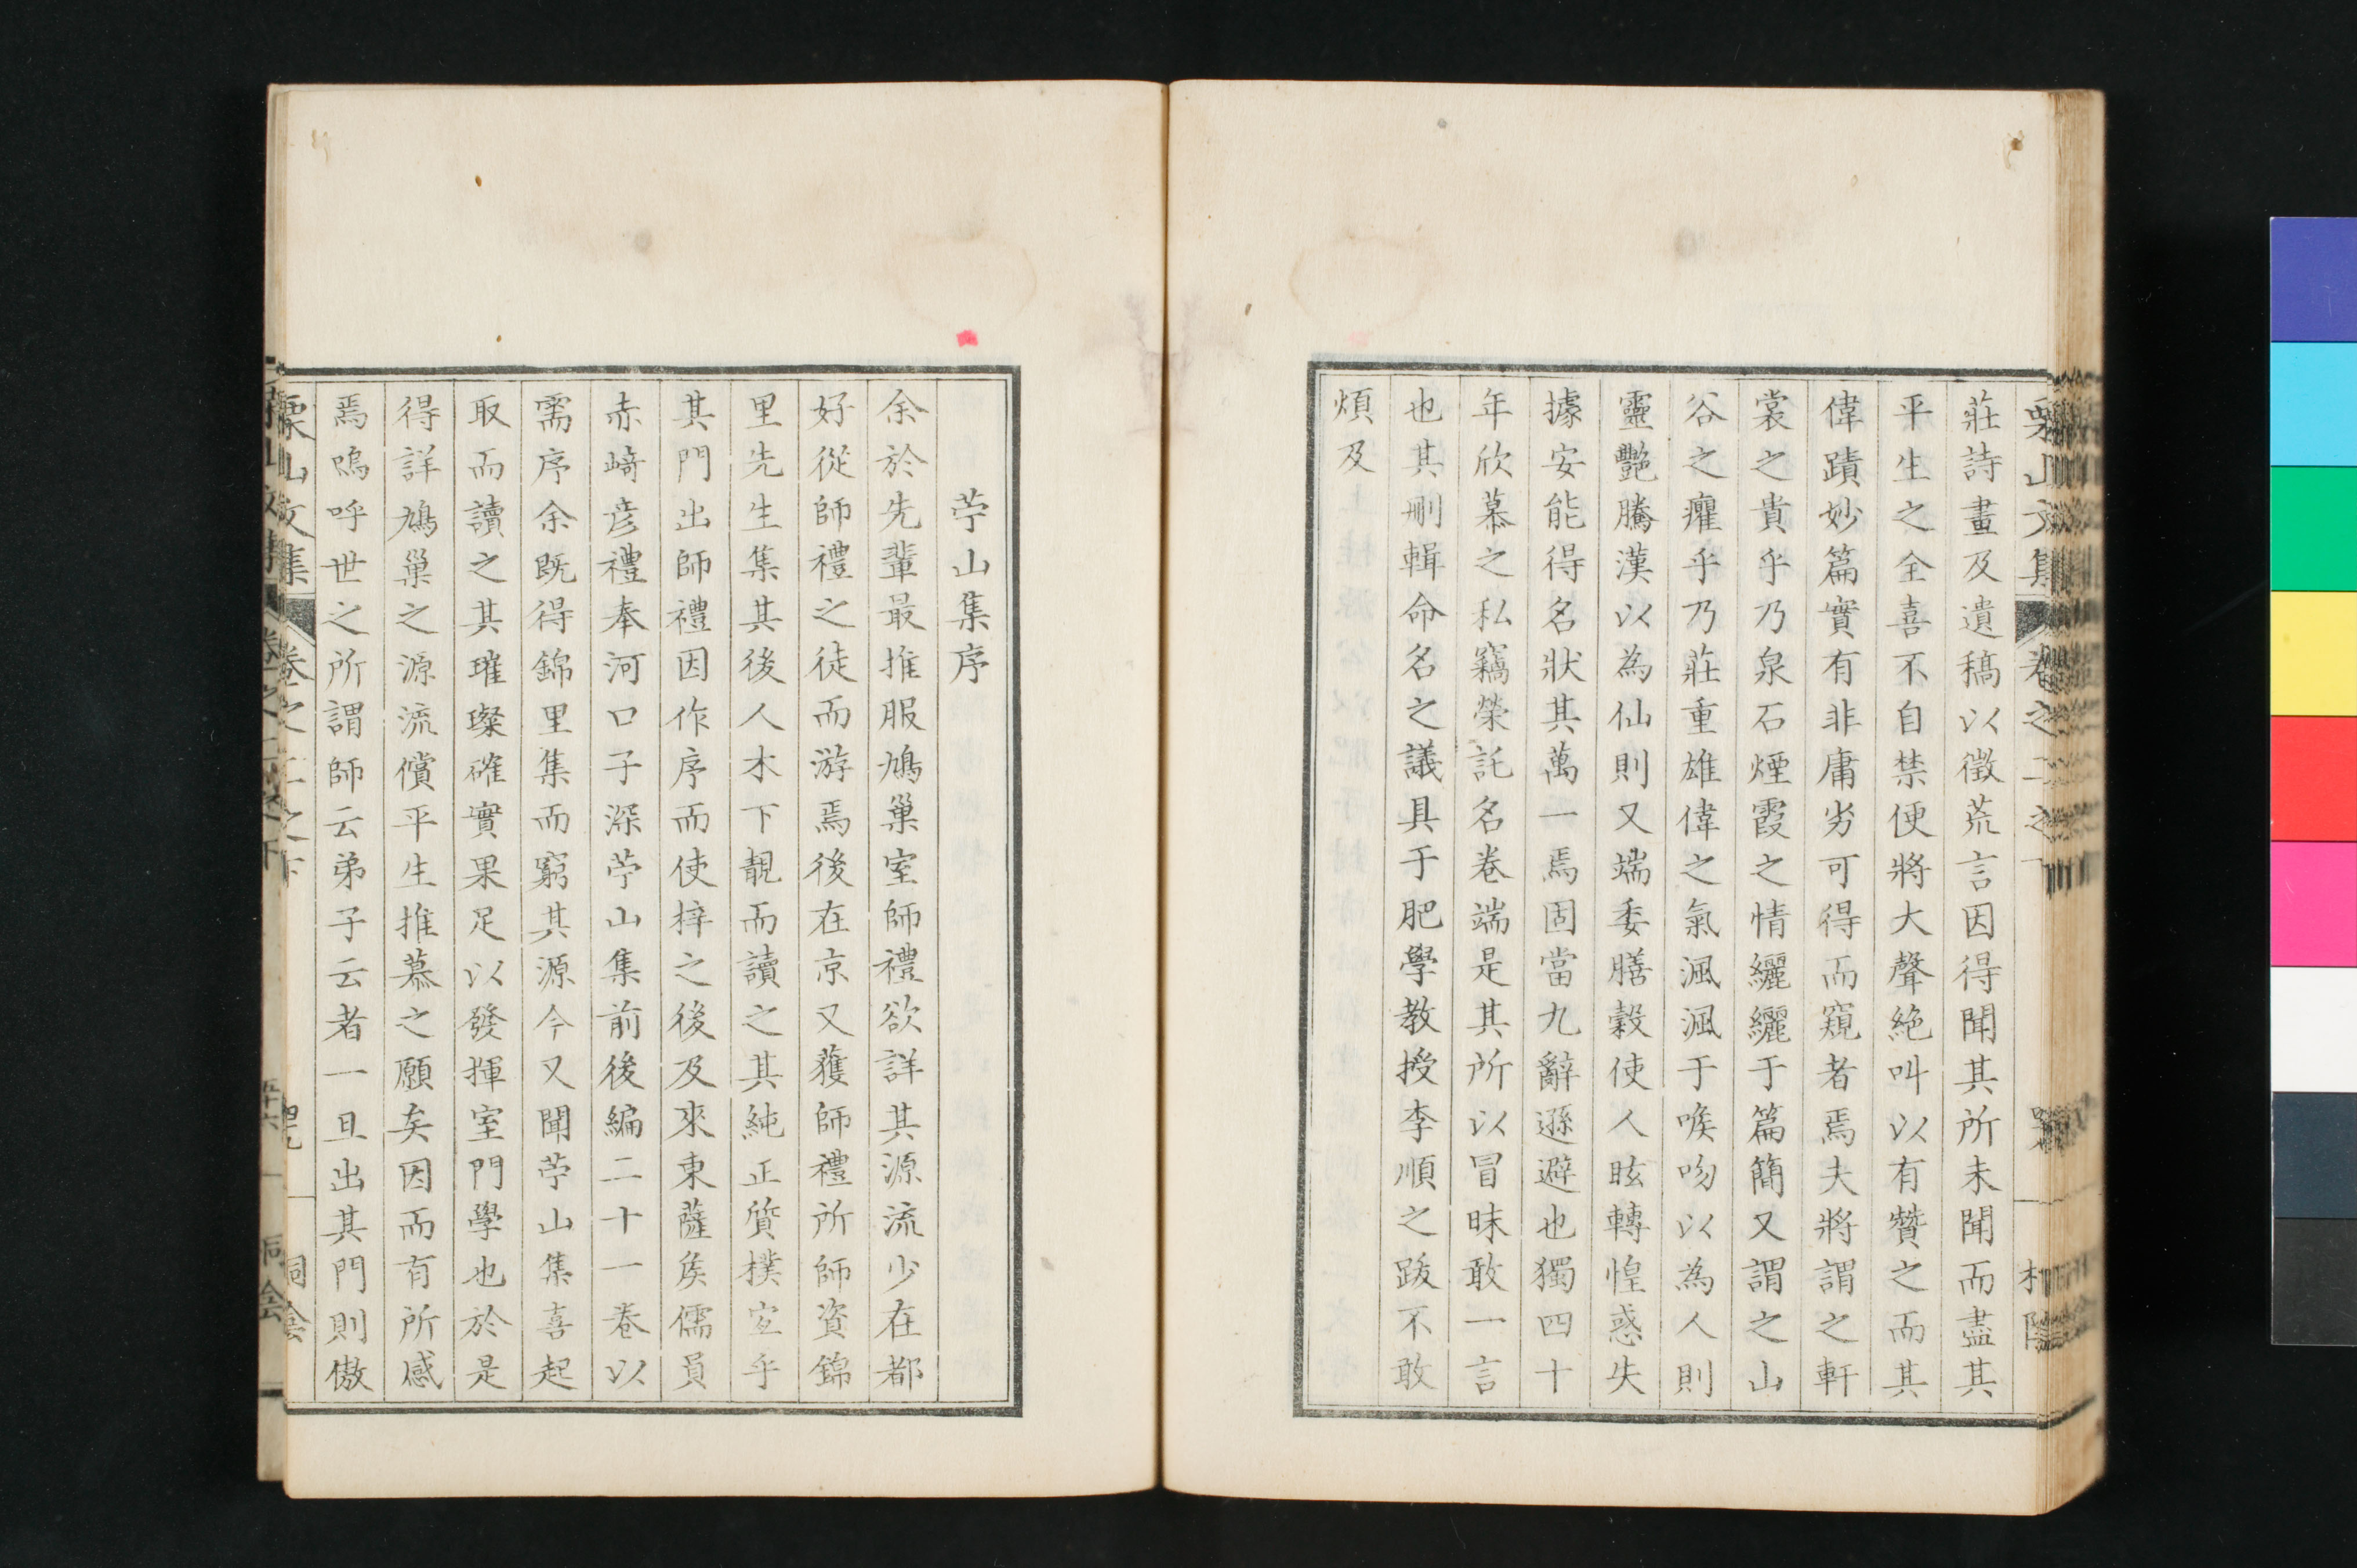 莊詩畫及遺稿以徵荒言因得聞其所未聞而盡其
平生之全喜不自禁便將大聲絶叫以有贊之而其
偉蹟妙篇實有非庸劣可得而窺者焉夫將謂之軒
裳之貴乎乃泉石煙霞之情纚纚于篇簡又謂之山
谷之癯乎乃莊重雄偉之氣渢渢于喉吻以為人則
靈艷騰漢以為仙則又端委膳穀使人眩轉惶惑失
據安能得名狀其萬一焉固當九辭遜避也獨四十
年欣慕之私竊榮託名卷端是其所以冒昧敢一言
也其刪輯命名之議具于肥學教授李順之跋不敢
煩及
苧山集序
余於先輩最推服鳩巢室師禮欲詳其源流少在都
好從師禮之徒而游焉後在京又獲師禮所師資錦
里先生集其後人木下靚而讀之其純正質樸宜乎
其門出師禮因作序而使梓之後及來東薩侯儒員
赤﨑彦禮奉河口子深苧山集前後編二十一卷以
需序余既得錦里集而窮其源今又聞苧山集喜起
取而讀之其璀璨確實果足以發揮室門學也於是
得詳鳩巢之源流償平生推慕之願矣因而有所感
焉嗚呼世之所謂師云弟子云者一旦出其門則傲
栗山文集 卷之二之下